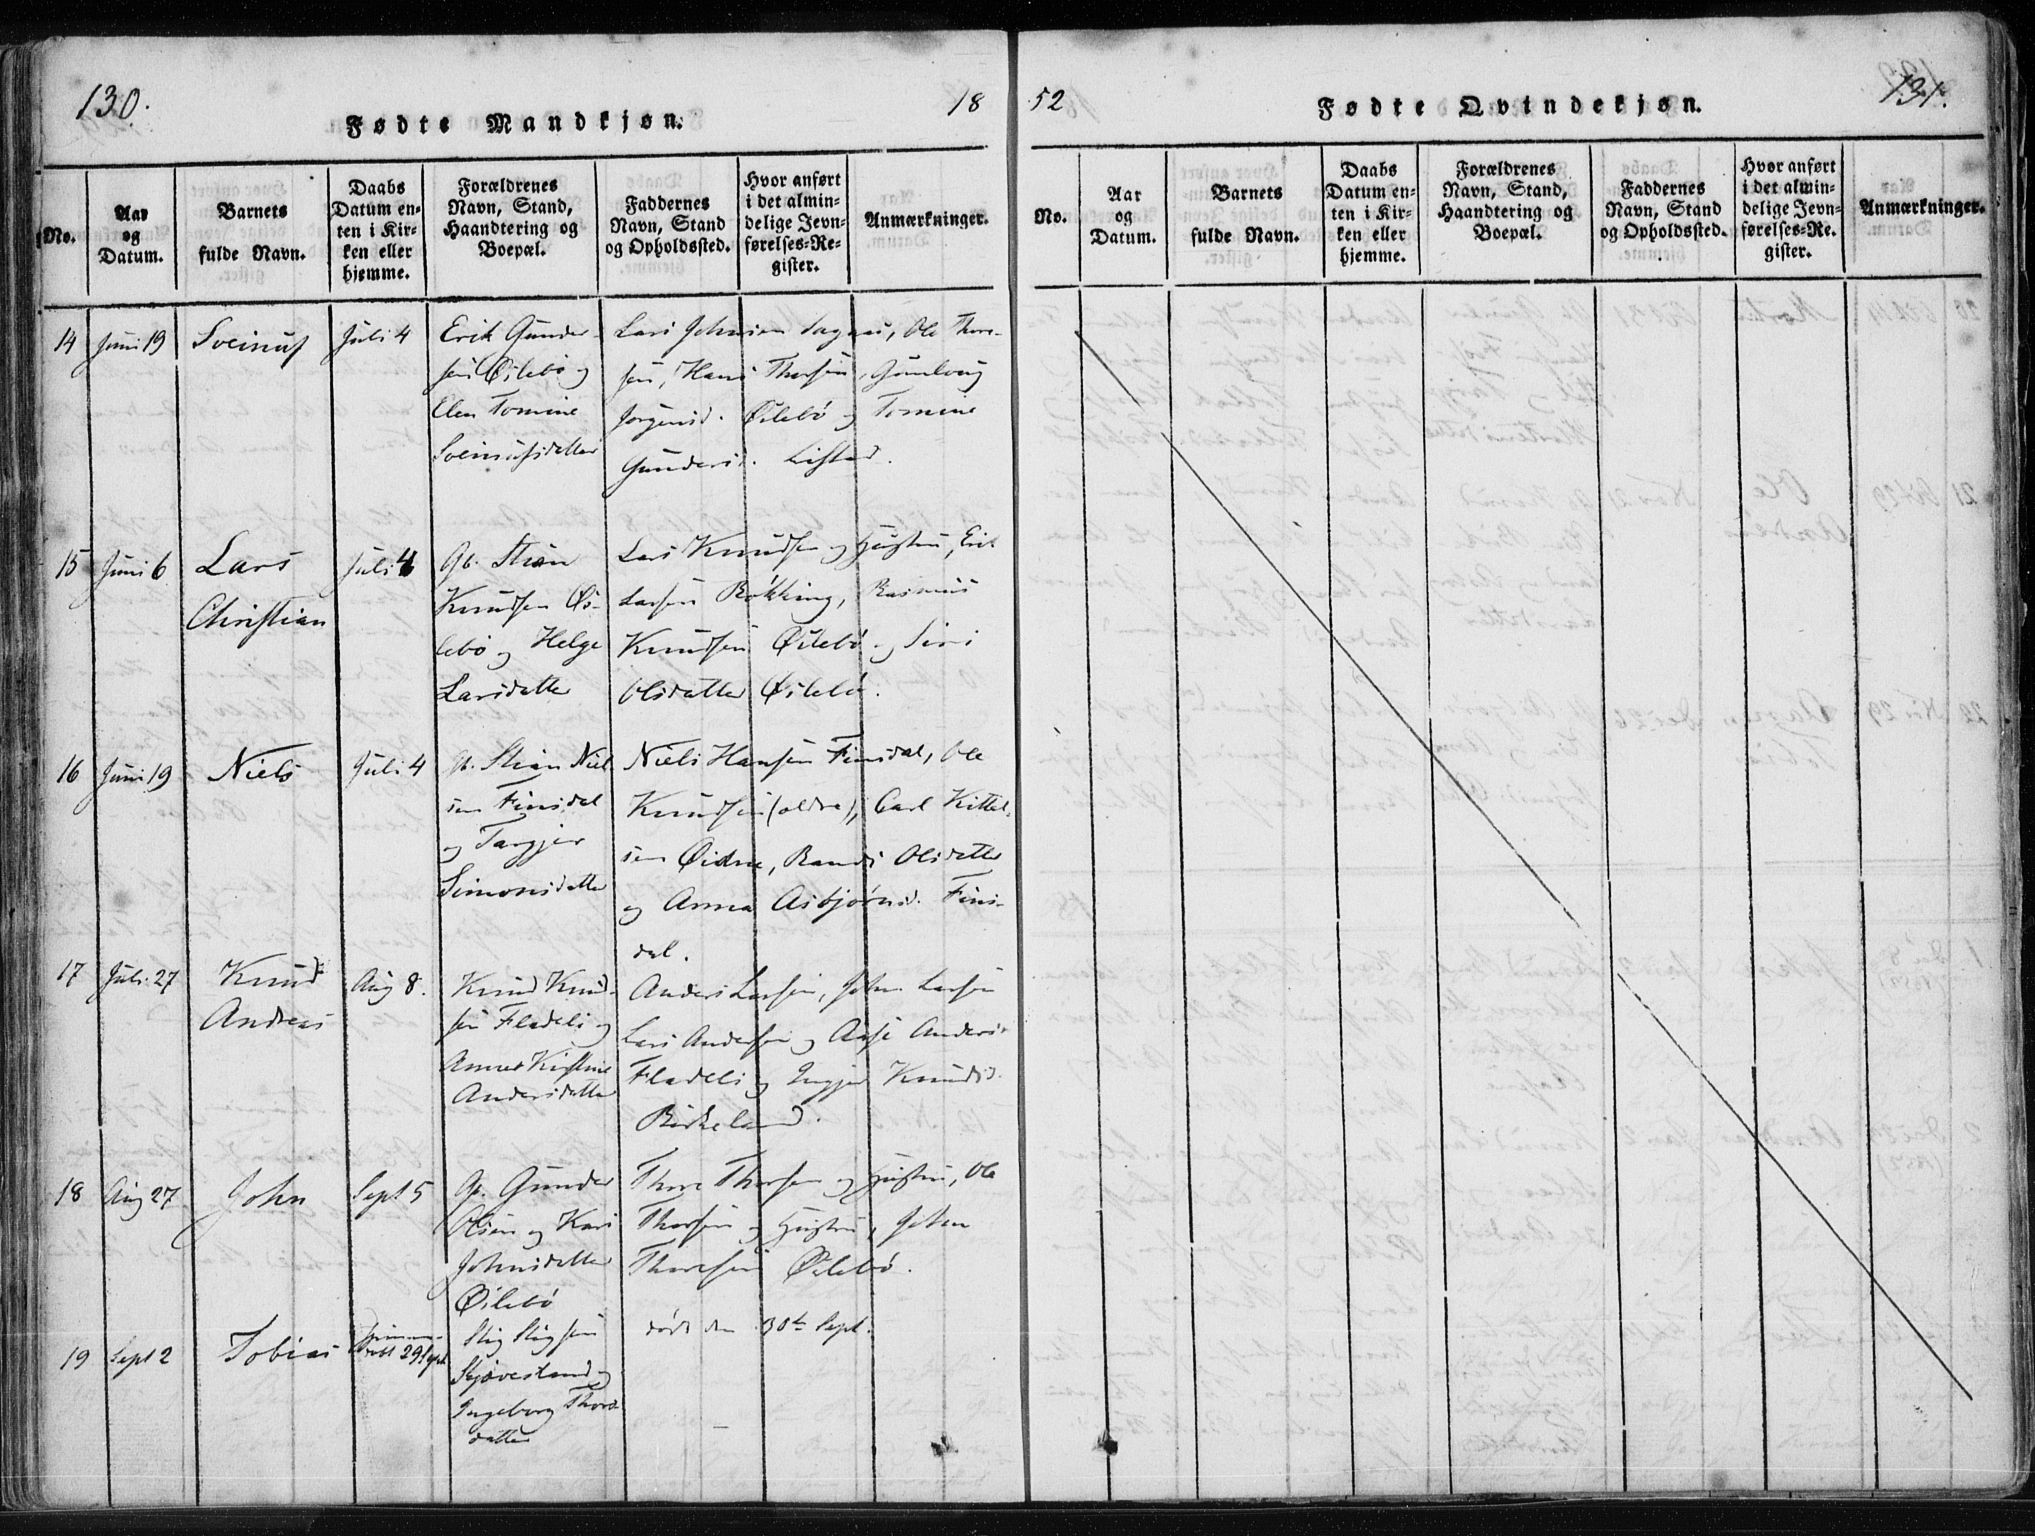 130.
18
Fødte Mandkjøn.
No.
Aar
og
Datum.
Barnets
fulde Navn.
Daabs
Datum en-
ten i Kir-
ken eller
hjemme.
Forældrenes
Navn, Stand,
Haandtering og
Boepæl.
Faddernes
Navn, Stand
og Opholdssted.
Hvor anført
i det almin-
delige Jevn-
førelses-Re-
gister.
Anmærkninger.
14 Juni 19 Soeinuf Juli 4
Erik Gunder-
sen Øilebø og
Elen Tomine
Soeinufsdatter
Lars Johnsen Ole Thore-
sen, Hans Thorsen, Gunlaug
Jørgensd. Øilebø og Tomine
Gundersd. Lifted.
15 Juni 6 Lars
Christian
Juli 4
Gb. Stian
Knudsen Øi-
lebø og Helge
Larsdatter
Lars Knudsen og Hustru, Erik
Larsen Røkking, Rasmus
Knudsen Øilebø og Siri
Olsdatter Øilebø.
16 Juni 19 Niels Juli 4
Gb. Stian Niel
sen Finsdal
og Targjer
Simonsdatter
Niels Hansen Finsdal, Ole
Knudsen (ældre), Carl Kittel-
sen Øidne, Randi Olsdatter
og Anna Asbjørnsd. Fins-
dal.
17 Juli 27 Knud
Andreas
Aug 8.
Knud Knud-
sen Fladeli og
Anne Kistine
Andersdatter
Anders Larsen, John Larsen
Lars Andersen og Aase Anders-
Fladeli og Ingjer Knudsd.
Birkeland.
18 Aug 27 John Sept 5
Gb. Gunder
Olsen og Kari
Johnsdatter
Øilebø
Thore Thorsen og Hustru, Ole
Thorsen og Hustru, John
Thoresen Øilebø.
19 Sept 2 Tobias
29 Sept
Stig Stigsen
Skjøvesland og
Ingeborg Thors
datter
døde den 30te Sept.
52
131.
Fødte Qvindekjøn.
No.
Aar
og
Datum.
Barnets
fulde Navn.
Daabs
Datum en-
ten i Kir-
ken eller
hjemme.
Forældrenes
Navn, Stand,
Haandtering og
Boepæl.
Faddernes
Navn, Stand
og Opholdssted.
Hvor anført
i det almin-
delige Jevn-
førelses-Re-
gister.
Anmærkninger.